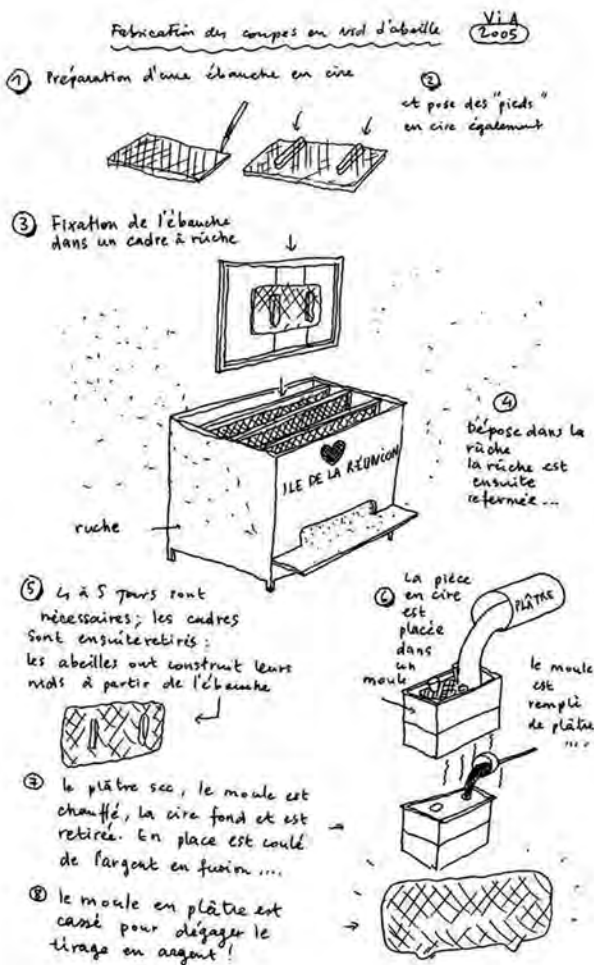 Fabrication des coupes en nid d'abeille
ViA
2005
① Préparation d'une ébauche en cire
②
et pose des "pieds"
en cire également
③ Fixation de l'ébauche
dans un cadre à rûche
④
Dépose dans la
rûche
la rûche est
ensuite
refermée...
ILE DE LA RÉUNION
ruche
⑤ 4 à 5 jours sont
nécessaires; les cadres
sont ensuite retirés :
les abeilles ont construit leurs
nids à partir de l'ébauche
⑥ La pièce
en cire
est
placée
dans
un
moule
PLÂTRE
le moule
est
rempli
de plâtre
....
⑦ le plâtre sec, le moule est
chauffé, la cire fond et est
retirée. En place est coulé
de l'argent en fusion ....
⑧ le moule en plâtre est
cassé pour dégager le
tirage en argent !